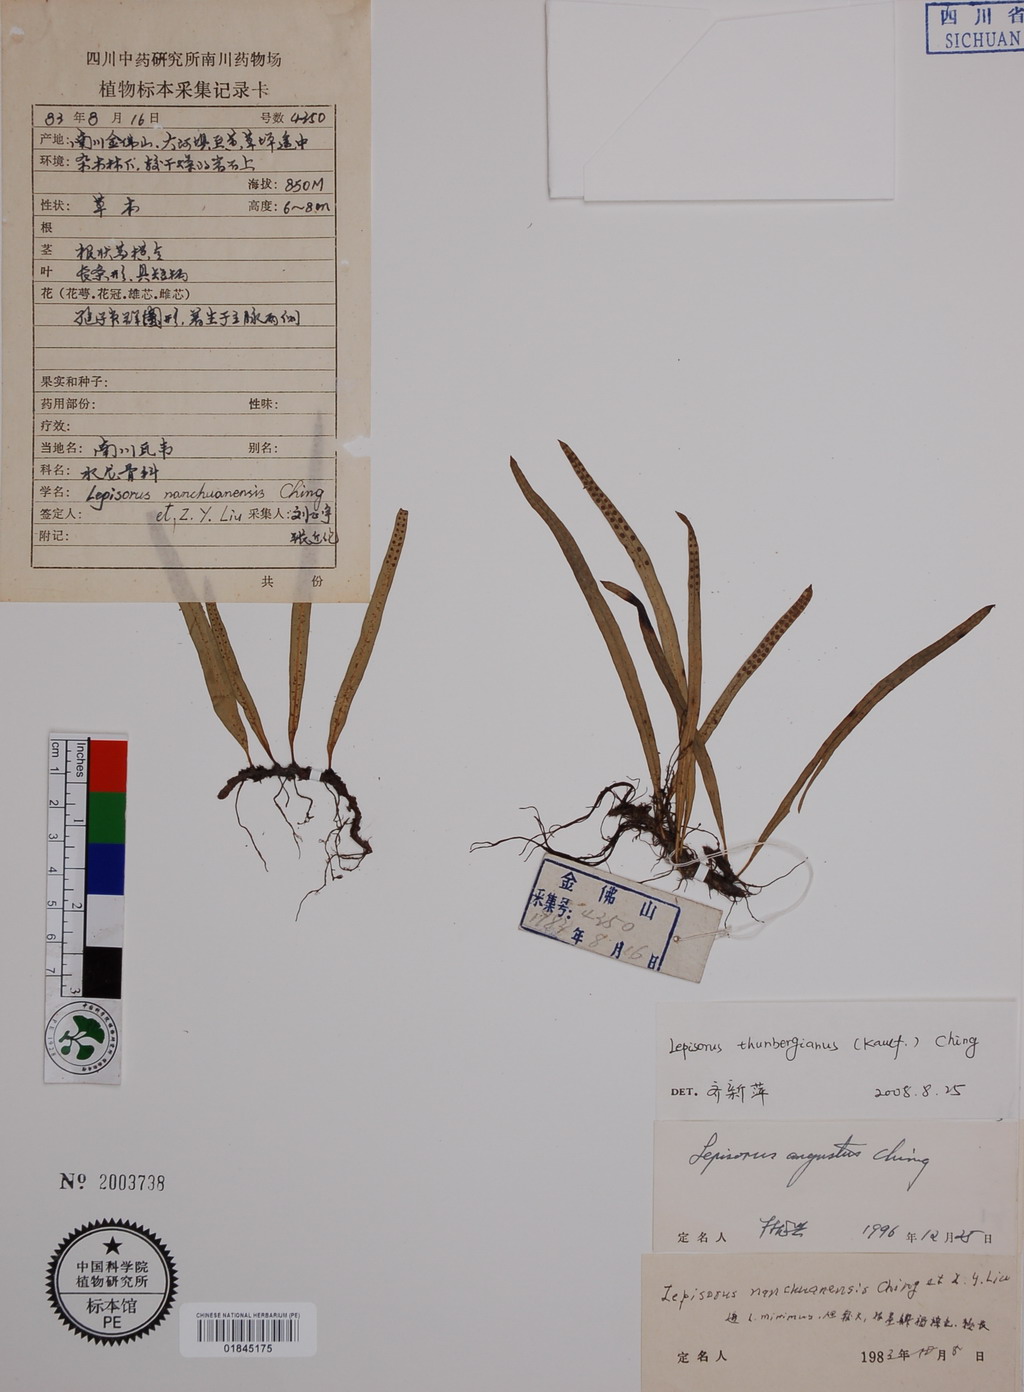 四川中药研究所南川药物场
植物标本采集记录卡
83 年 8 月 16 日 号数 4350
产地: 南川金佛山、大河坝至
环境: 杂木林下, 较干燥的岩石上
海拔: 850M
性状: 草本 高度: 6~8m
根
茎 根状茎横走
叶 长条形、具短柄
花 (花萼.花冠.雄芯.雌芯)
孢子囊群圆形, 着生于主脉两侧
果实和种子:
药用部份: 性味:
疗效:
当地名: 南川瓦韦 别名:
科名: 水龙骨科
学名: Lepisorus nanchuanensis Ching
签定人: et, Z. Y. Liu 采集人: 刘正宇
附记:
共 份
四川省
SICHUAN
金佛山
采集号: 4350
1983 年 8 月 16 日
cm 1 2 3 4 5 6 7
Inches 1 2 3
Lepisorus thunbergianus (Kaulf.) Ching
DET. 齐新萍 2008.8.25
Lepisorus angustus Ching
定名人 1996 年 12 月 25 日
Lepisorus nanchuanensis Ching et Z. Y. Liu
L. minimus
定名人 1983 年 月 日
Nº 2003738
中国科学院
植物研究所
标本馆
PE
CHINESE NATIONAL HERBARIUM (PE)
01845175